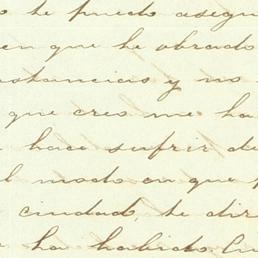 o te puedo asegu
en que he obrado
nstancias y no
que creo me ha
hace sufrir de
l modo en que
ciudad, te dir
ha habido. Cu